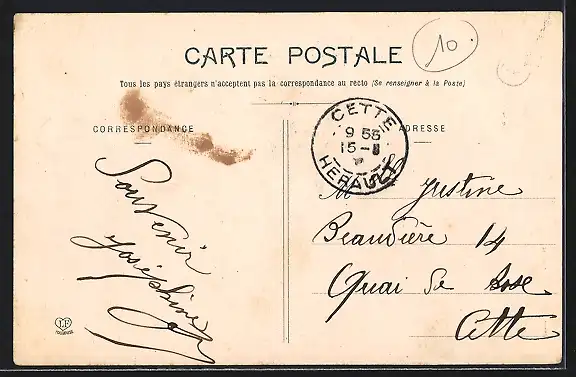 CARTE POSTALE
10
Tous les pays étrangers n'acceptent pas la correspondance au recto (Se renseigner à la Poste)
CORRESPONDANCE
ADRESSE
CETTE
9 55
15 -
HÉRAULT
Souvenir
Joséphine
M Justine
Beaudière 14
Quai de Bosc
Cette
LF